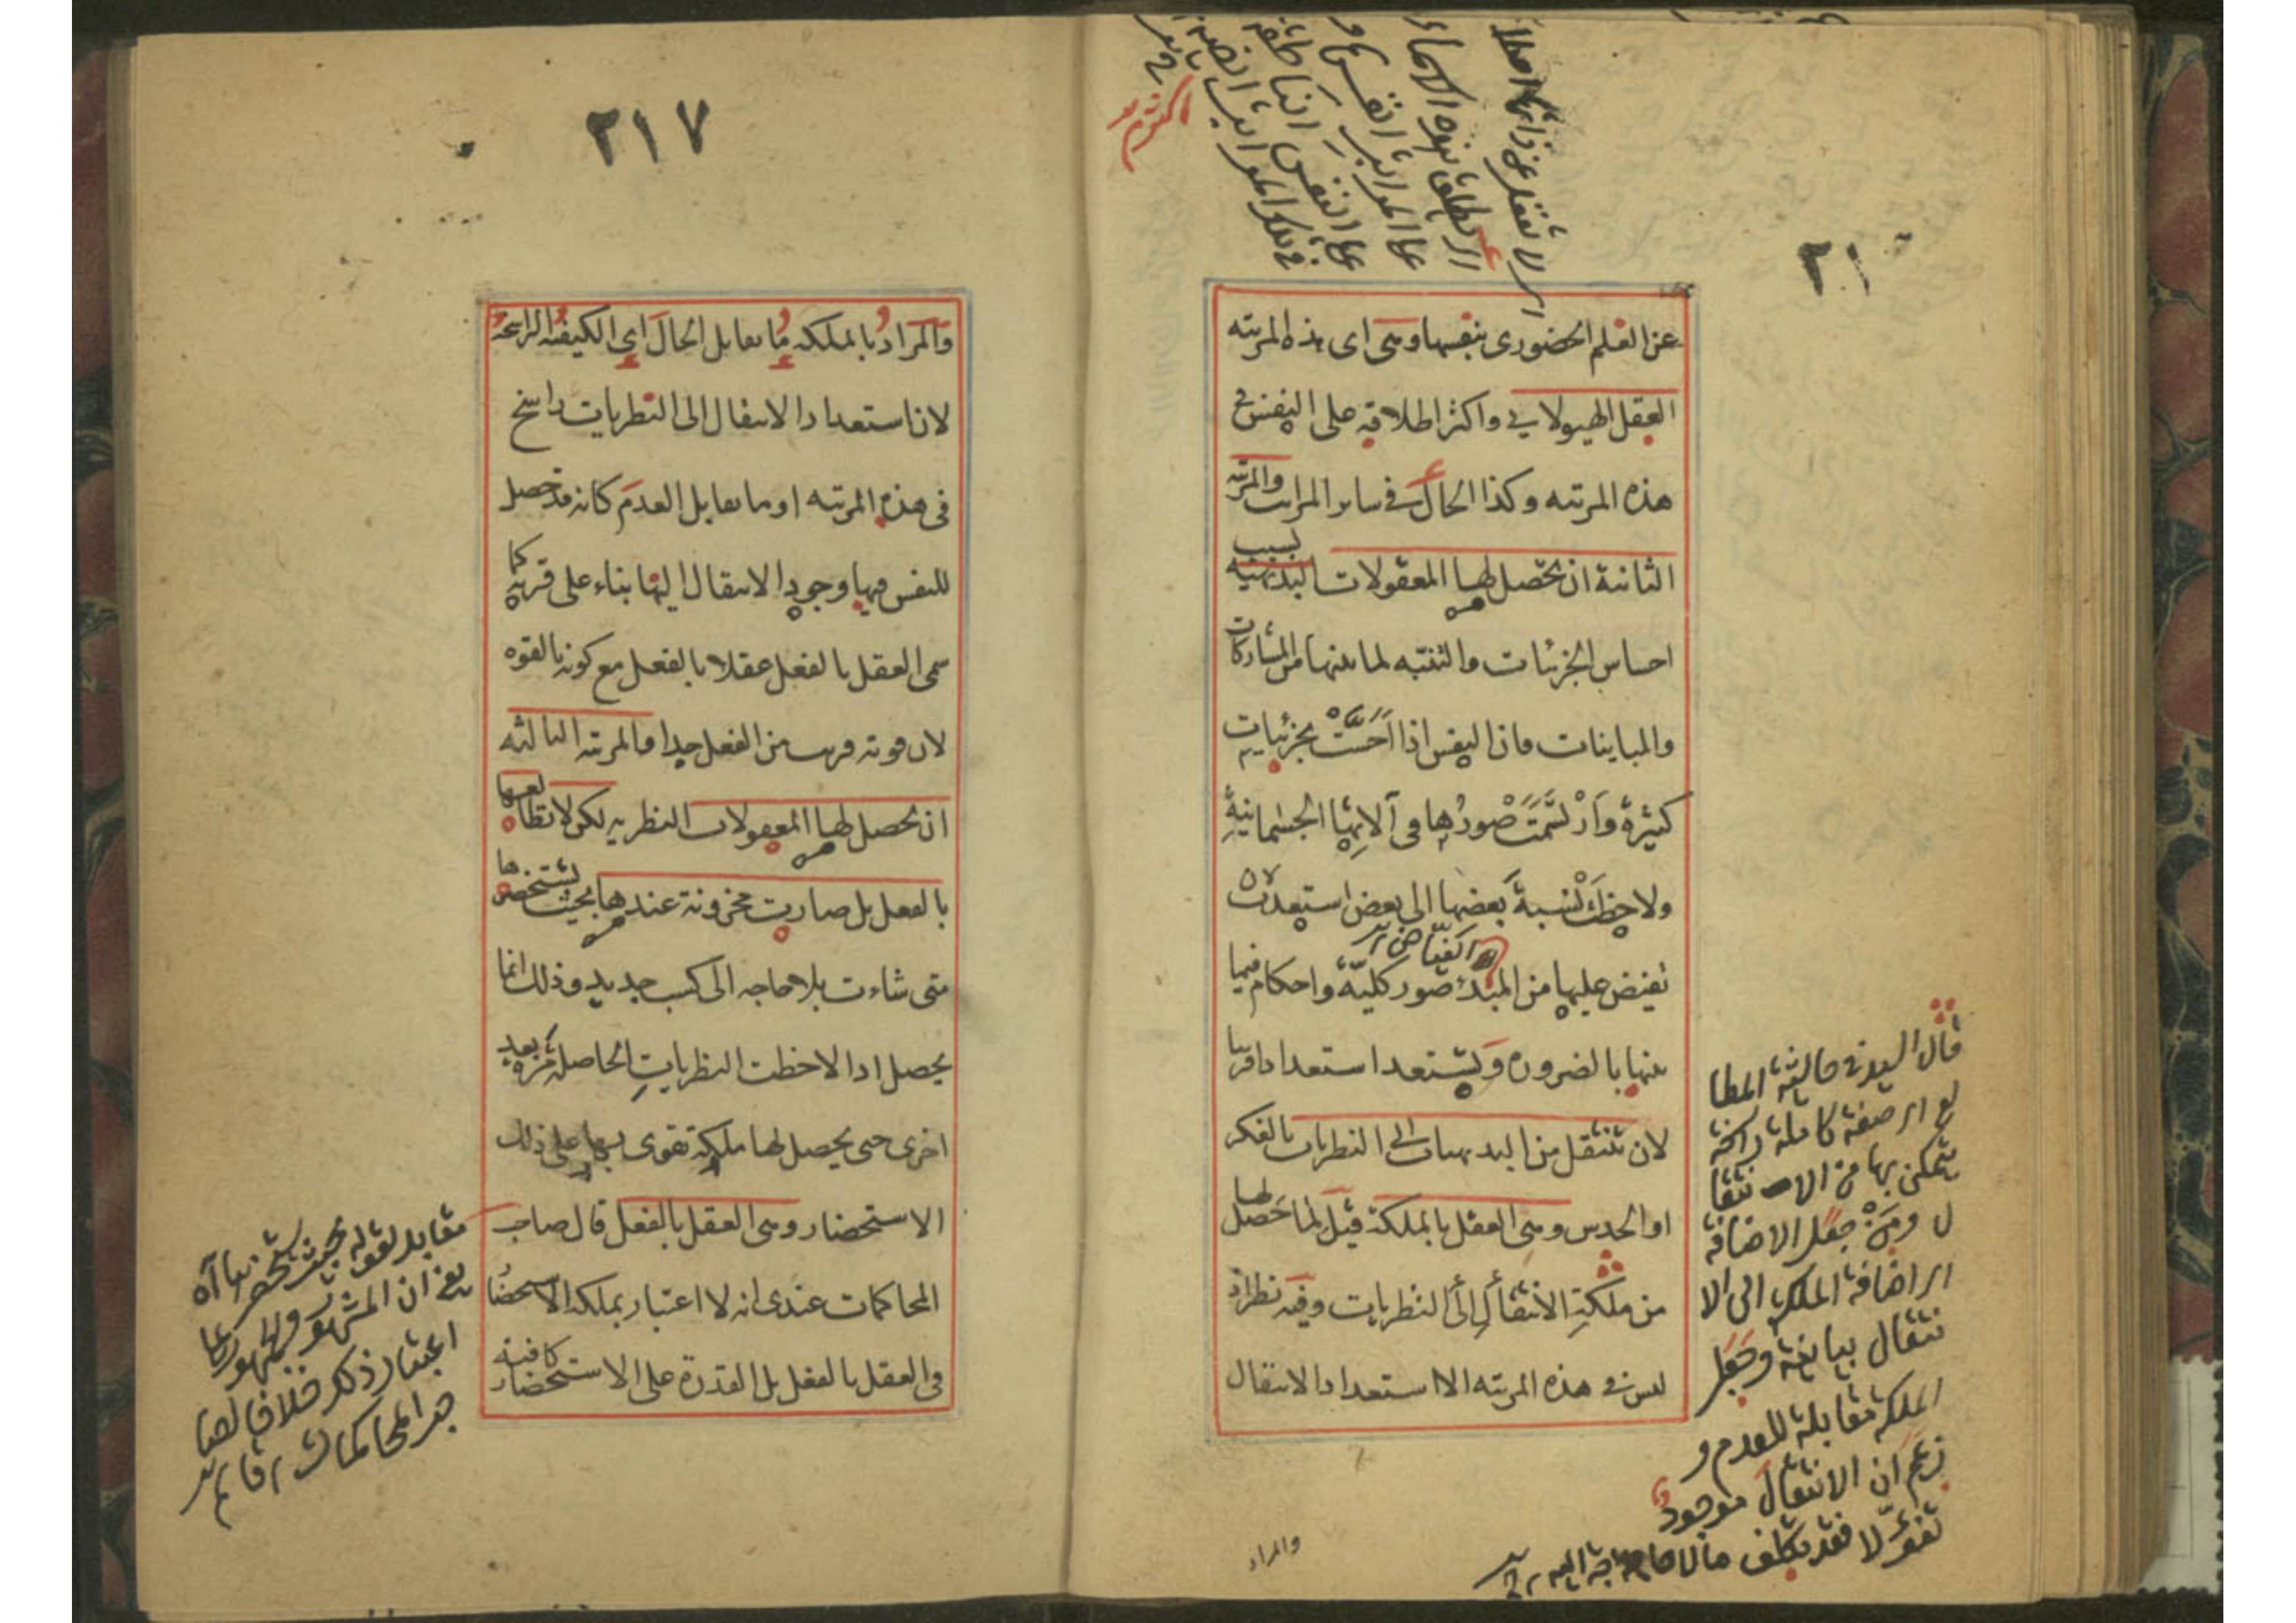 ٢١
عن العلم الحضورى بنفسها وسمى اى هذه المرتبه
العقل الهيولانى واكثر اطلاقه على النفس فى
هذه المرتبه وكذا الحال فى سائر المراتب والمرتبه
الثانية ان تحصل لها المعقولات البديهيه بسبب
احساس الجزئيات والتنبه لما بينها من المشاركات
والمباينات فان النفس اذا احست بجزئيات
كثيرة وارتسمت صورها فى آلاتها الجسمانية
ولاحظت نسبة بعضها الى بعض استعدت لان
تفيض عليها من المبدء صور كلية واحكام فيما
بينها بالضرورة ويستعد استعدادا قريبا
لان تنتقل من البديهيات الى النظريات بالفكر
او الحدس وسمى العقل بالملكة قيل لما حصل لها
من ملكة الانتقال الى النظريات وفيه نظر اذ
ليس فى هذه المرتبه الا استعداد الانتقال
قال السيد فى حاشية المطا
لع اى صفة كاملة راسخة
يتمكن بها من الا نتقا
ل ومن جعل الاضافة
اى اضافة الملكة الى الا
نتقال بيانية وجعل
الملكة مقابلة للعدم و
زعم ان الانتقال موجود
فقد تكلف مالا حاجة اليه
والمراد
٢١٧
والمراد بالملكه ما يقابل الحال اى الكيفية الراسخة
لان استعداد الانتقال الى النظريات راسخ
فى هذه المرتبه او ما يقابل العدم كانه قد حصل
للنفس فيها وجود الانتقال اليها بناء على قربه كما
سمى العقل بالفعل عقلا بالفعل مع كونه بالقوه
لان قوته قريب من الفعل جدا والمرتبه الثالثه
ان يحصل لها المعقولات النظريه لكن لا تطالعها
بالفعل بل صارت مخزونة عندها بحيث تستحضرها
متى شاءت بلا حاجه الى كسب جديد وذلك انما
يحصل اذا لاحظت النظريات الحاصلة مرة بعد
اخرى حتى يحصل لها ملكة تقوى بها على ذلك
الاستحضار وسمى العقل بالفعل قال صاحب
المحاكمات عندى انه لا اعتبار بملكه الاستحضار
فى العقل بالفعل بل القدرة على الاستحضار كافية
مقابل لقوله بحيث تستحضرها آه
يعنى ان المشهور
اعتبار ذلك خلافا لصا
حب المحاكمات